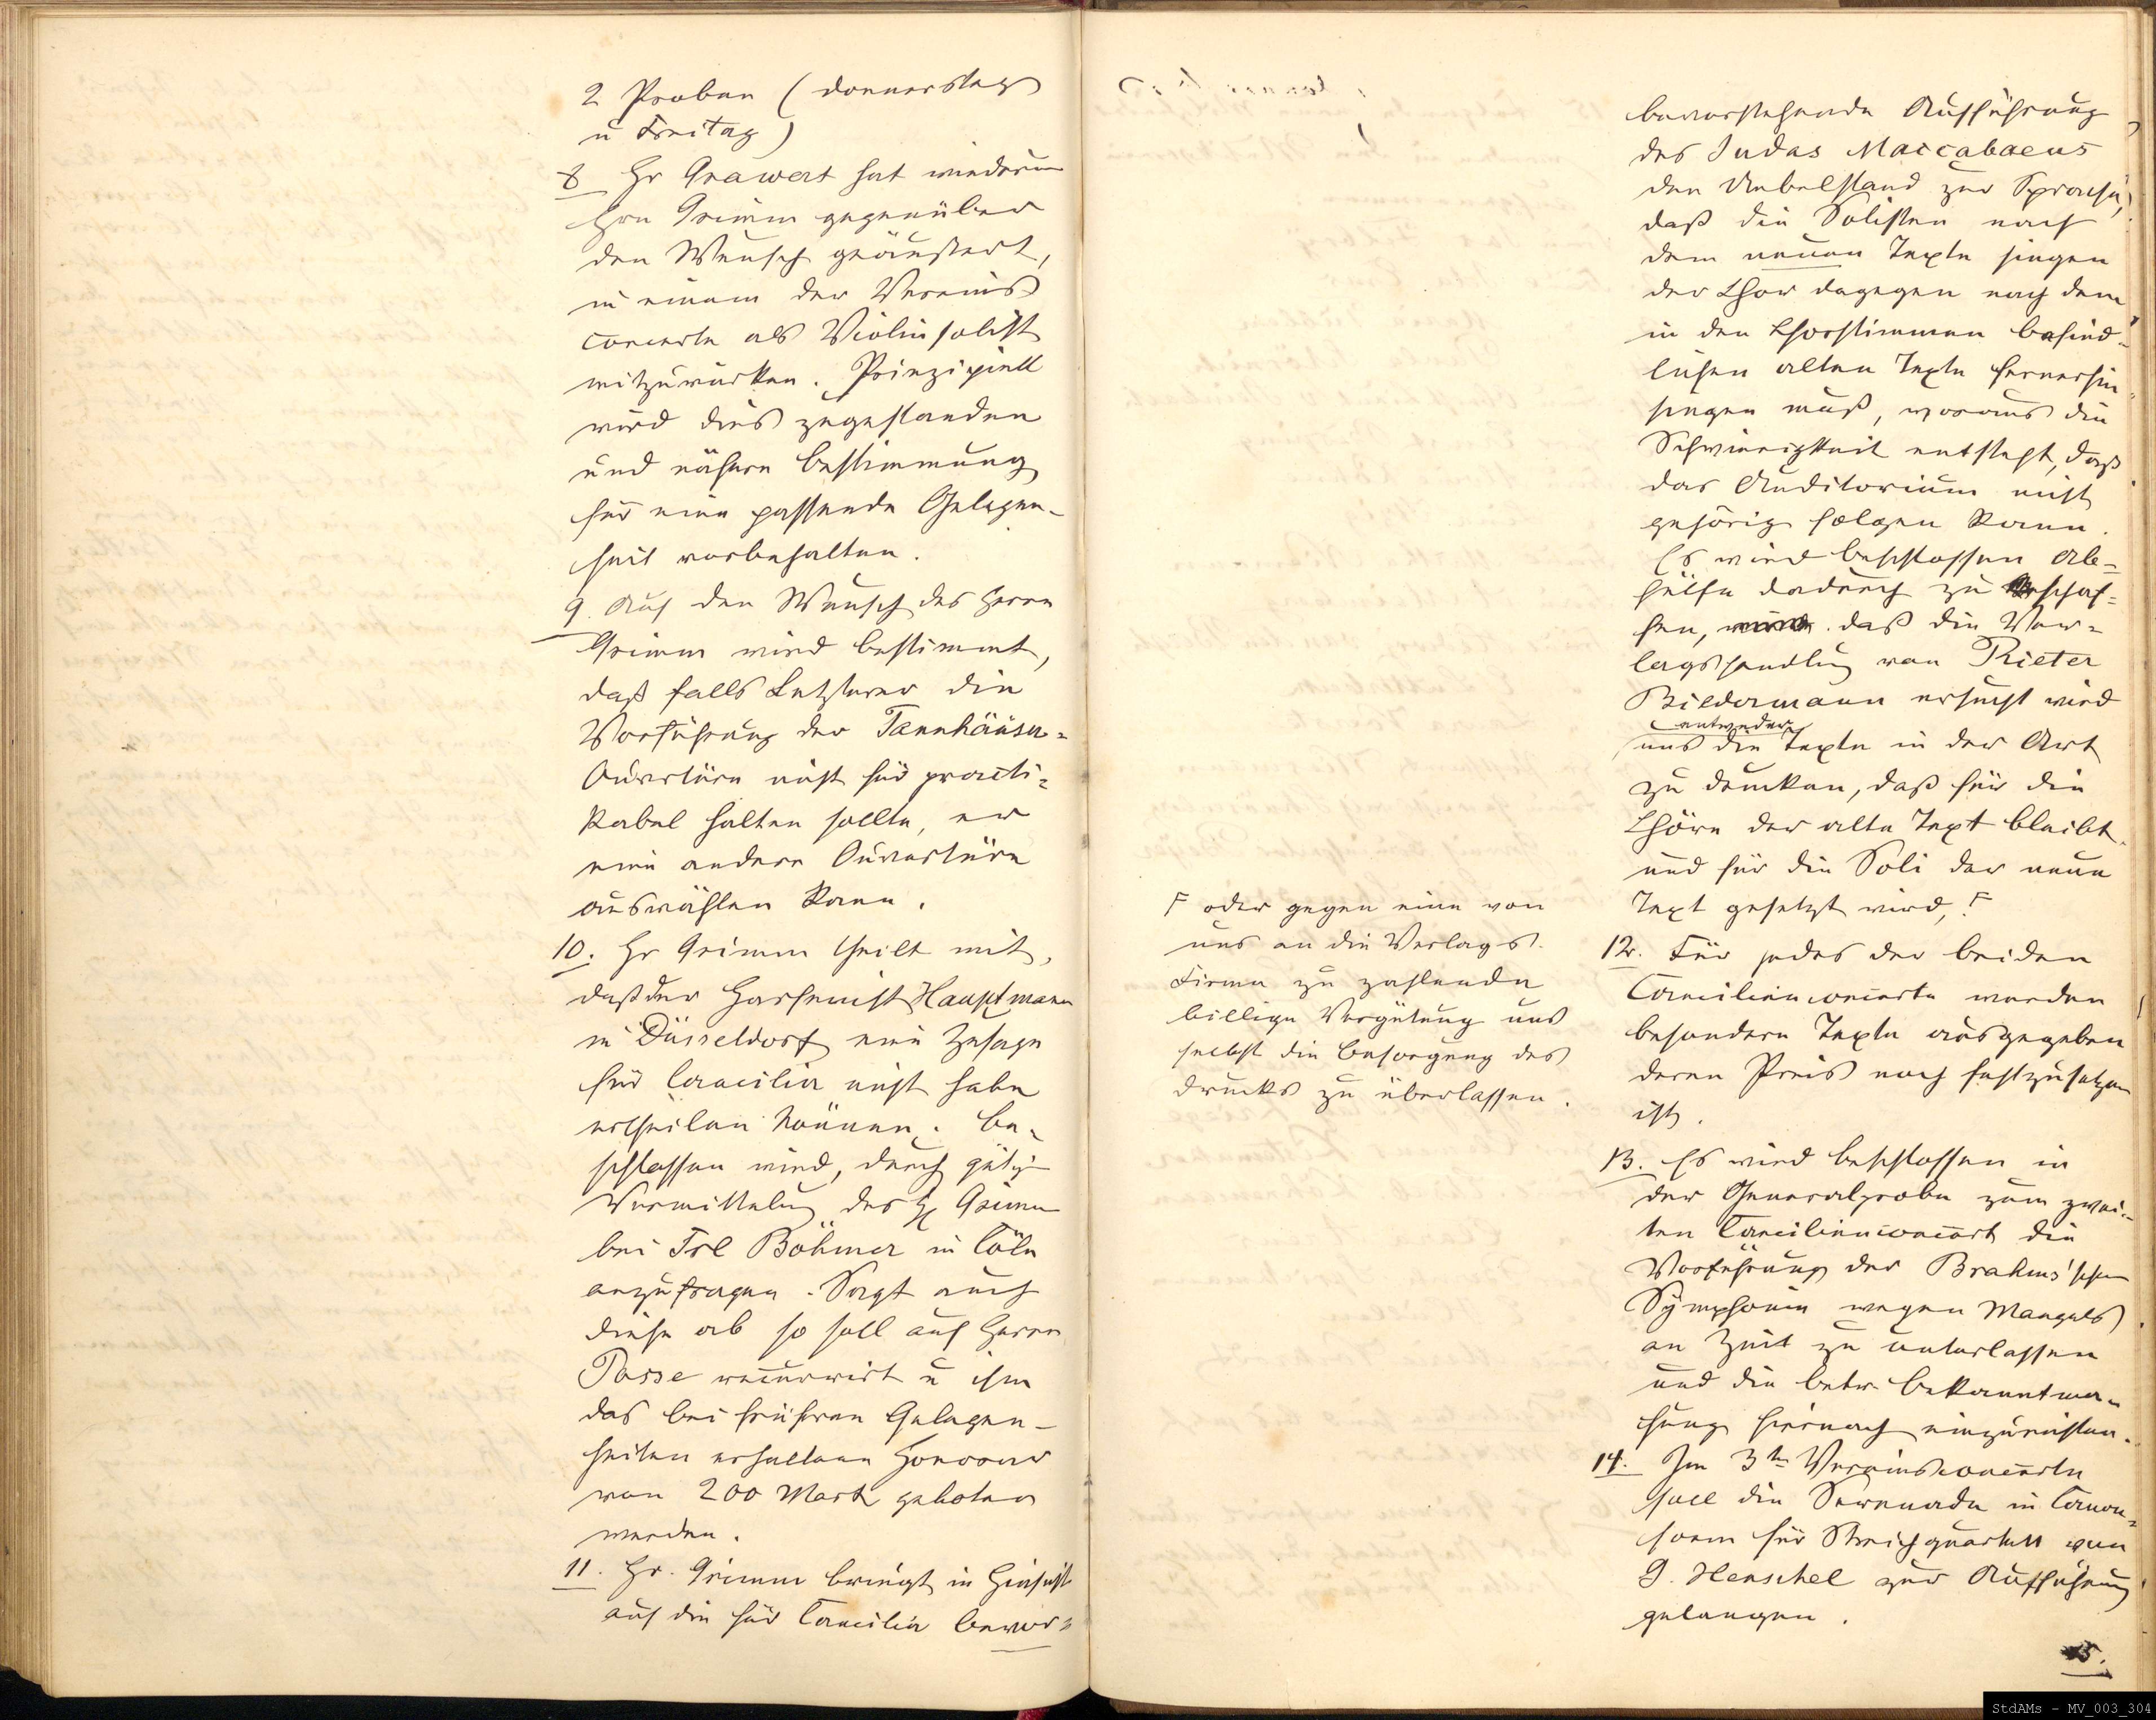 2 Proben (Donnerstag
u Freitag)
8 Hr Grawert hat wiederum
Hrn Grimm gegenüber
den Wunsch geäußert,
in einem der Vereins
concerte als Violinsolist
mitzuwirken. Prinzipiell
wird dies zugestanden
und nähere Bestimmung
für eine passende Gelegen-
heit vorbehalten.
9. Auf den Wunsch des Herrn
Grimm wird bestimmt,
daß falls Letzterer die
Vorführung der Tannhäuser-
Ouvertüre nicht für practi-
kabel halten sollte, er
eine andere Ouvertüre
auswählen kann.
10. Hr Grimm theilt mit,
daß der Harfenist Hauptmann
in Düsseldorf eine Zusage
für Caecilia nicht habe
ertheilen können. Be-
schlossen wird, durch gütige
Vermittelung des H. Grimm
bei Frl Böhmer in Cöln
anzufragen. Sagt auch
diese ab so soll auf Herrn
Passe recurrirt u ihm
das bei früheren Gelegen-
heiten erhaltene Honorar
von 200 Mark geboten
werden.
11. Hr. Grimm bringt in Hinsicht
auf die für Caecilia bevor-
bevorstehende Aufführung
des Judas Maccabaeus
den Uebelstand zur Sprache,
daß die Solisten nach
dem neuen Texte singen
der Chor dagegen nach dem
in den Chorstimmen befind-
lichen alten Texte fernerhin
singen muß, woraus die
Schwierigkeit entsteht, daß
das Auditorium nicht
gehörig folgen kann.
Es wird beschlossen Ab-
hülfe dadurch zu schaf-
fen, daß die Ver-
lagshandlung von Rieter
Biedermann ersucht wird
entweder
uns die Texte in der Art
zu drucken, daß für die
Chöre der alte Text bleibt
und für die Soli der neue
Text gesetzt wird, F
F oder gegen eine von
uns an die Verlags-
Firma zu zahlende
billige Vergütung uns
selbst die Besorgung des
Drucks zu überlassen.
12. Für jedes der beiden
Caecilienconcerte werden
besondere Texte ausgegeben
deren Preis noch festzusetzen
ist.
13. Es wird beschlossen in
der Generalprobe zum zwei-
ten Caecilienconcert die
Vorführung der Brahms'schen
Symphonie wegen Mangels
an Zeit zu unterlassen
und die betr. Bekanntma-
chung hiernach einzurichten.
14. Im 3ten Vereinsconcerte
soll die Serenade in Canon-
form für Streichquartett von
G. Henschel zur Aufführung
gelangen.
15.
StdAMs - MV_003_304